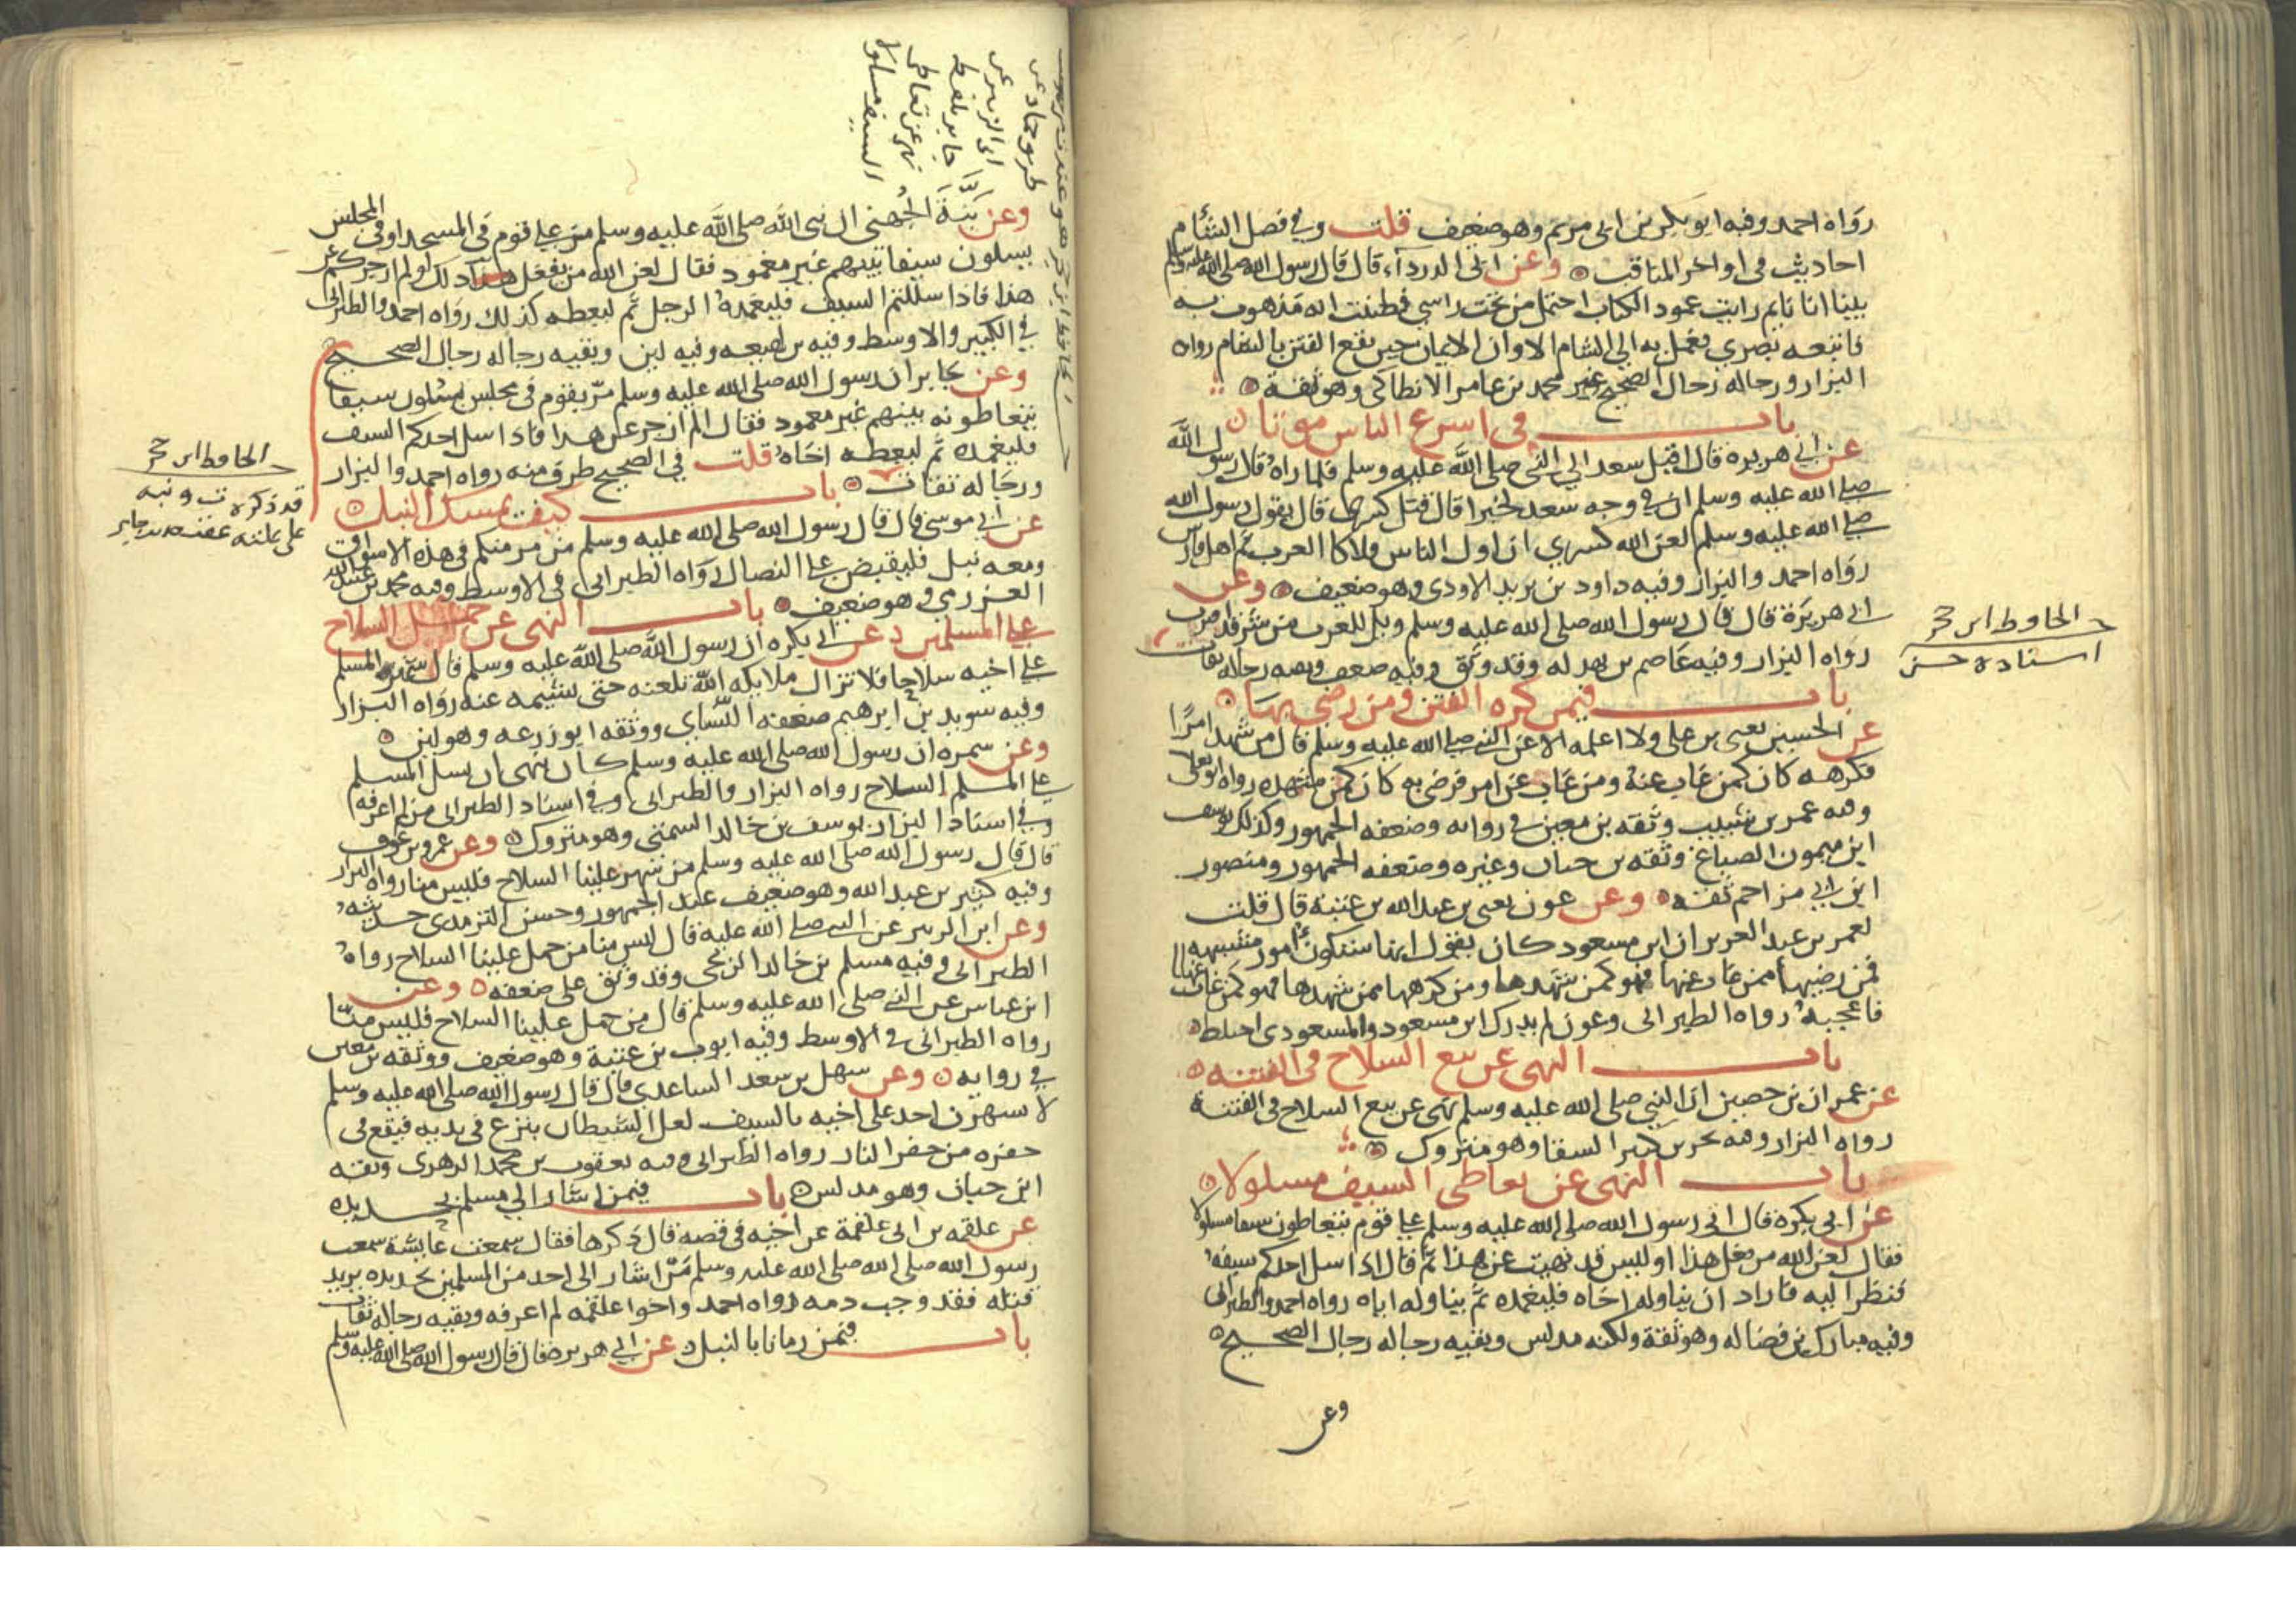 رواه احمد وفيه ابو بكر بن ابى مريم وهو ضعيف قلت وفي فضل الشام
احاديث فى اواخر المناقب وعن ابى الدرداء قال قال رسول الله صلى الله عليه وسلم
بينا انا نايم رايت عمود الكتاب احتمل من تحت راسي فظننت انه مذهوب به
فاتبعه بصري فعمل به الى الشام الا وان الايمان حين يقع الفتن بالشام رواه
البزار ورجاله رجال الصحيح غير محمد بن عامر الانطاكى وهو ثقة
باب فى اسرع الناس موتا
عن ابي هريره قال اقبل سعد الى النبي صلى الله عليه وسلم فلما راه قال رسول الله
صلى الله عليه وسلم ان فى وجه سعد لخيرا قال قتل كسرى قال يقول رسول الله
صلى الله عليه وسلم لعن الله كسري ان اول الناس هلاكا العرب ثم اهل فارس
رواه احمد والبزار وفيه داود بن يزيد الاودى وهو ضعيف وعن
ابي هريرة قال قال رسول الله صلى الله عليه وسلم ويل للعرب من شر قد اقترب
رواه البزار وفيه عاصم بن بهدله وقد وثق وفيه ضعف وبقيه رجاله ثقات
الحافظ ابن حجر
اسناده حسن
باب فيمن كره الفتن ومن رضى بها
عن الحسين يعنى بن على ولا اعلمه الا عن النبي صلى الله عليه وسلم قال من شهد امرًا
فكرهه كان كمن غاب عنه ومن غاب عن امر فرضى به كان كمن شهده رواه ابو يعلى
وفيه عمر بن شبيب وثقه بن معين فى روايه وضعفه الجمهور وكذلك يوسف
ابن ميمون الصباغ وثقه بن حبان وغيره وضعفه الجمهور ومنصور
ابن ابي مزاحم ثقة وعن عون يعنى بن عبد الله بن عتبة قال قلت
لعمر بن عبد العزيز ان ابن مسعود كان يقول انها ستكون امور مشتبهه
فمن رضيها ممن غاب عنها فهو كمن شهدها ومن كرهها ممن شهدها فهو كمن غاب عنها
فاعجبه رواه الطبرانى وعون لم يدرك ابن مسعود والمسعودى اختلط
باب النهى عن بيع السلاح فى الفتنه
عن عمران بن حصين ان النبي صلى الله عليه وسلم نهى عن بيع السلاح فى الفتنة
رواه البزار وفيه بحر بن كنيز السقا وهو متروك
باب النهى عن تعاطى السيف مسلولا
عن ابى بكره قال اتى رسول الله صلى الله عليه وسلم على قوم يتعاطون سيفا مسلولا
فقال لعن الله من فعل هذا اوليس قد نهيت عن هذا ثم قال اذا سل احدكم سيفه
فنظر اليه فاراد ان يناوله اخاه فليغمده ثم يناوله اياه رواه احمد والطبرانى
وفيه مبارك بن فضاله وهو ثقة ولكنه مدلس وبقيه رجاله رجال الصحيح
وعن
طريق حماد عن
ابى الزبير عن
جابر بلفظ
نهى عن تعاطى
السيف مسلولا
وعن بَنَّةَ الجُهنى ان نبى الله صلى الله عليه وسلم مر على قوم فى المسجد او فى المجلس
يسلون سيفا بينهم غير مغمود فقال لعن الله من يفعل ذلك اولم ازجركم عن
هذا فاذا سللتم السيف فليغمده الرجل ثم ليعطه كذلك رواه احمد والطبرانى
في الكبير والاوسط وفيه بن لهيعه وفيه لين وبقيه رجاله رجال الصحيح
وعن جابر ان رسول الله صلى الله عليه وسلم مرّ بقوم فى مجلس يسلون سيفا
يتعاطونه بينهم غير مغمود فقال الم ازجر عن هذا فاذا سل احدكم السيف
فليغمده ثم ليعطه اخاه قلت فى الصحيح طرف منه رواه احمد والبزار
ورجاله ثقات باب كيف يمسك النبل
الحافظ ابن حجر
قد ذكره ت ونبه
على علته عقب حديث جابر
عن ابي موسى قال قال رسول الله صلى الله عليه وسلم من مر منكم فى هذه الاسواق
ومعه نبل فليقبض على النصال رواه الطبرانى فى الاوسط وفيه محمد بن عبيد الله
العزرمي وهو ضعيف باب النهى عن حمل السلاح
على المسلمين عن ابي بكره ان رسول الله صلى الله عليه وسلم قال المسلم
على اخيه سلاحا فلا تزال ملايكه الله تلعنه حتى يشيمه عنه رواه البزار
وفيه سويد بن ابرهيم ضعفه النساي ووثقه ابو زرعه وهو لين
وعن سمره ان رسول الله صلى الله عليه وسلم كان ينهى ان يسل المسلم
على المسلم السلاح رواه البزار والطبرانى وفى اسناد الطبرانى من لم اعرفه
وفى اسناد البزار يوسف بن خالد السمتى وهو متروك وعن عمرو بن عوف
قال قال رسول الله صلى الله عليه وسلم من شهر علينا السلاح فليس منا رواه البزار
وفيه كثير بن عبد الله وهو ضعيف عند الجمهور وحسن الترمدى حديثه
وعن ابن الزبير عن النبي صلى الله عليه قال ليس منا من حمل علينا السلاح رواه
الطبرانى وفيه مسلم بن خالد الزنجى وقد وثق على ضعفه وعن
ابن عباس عن النبي صلى الله عليه وسلم قال من حمل علينا السلاح فليس منّا
رواه الطبرانى فى الاوسط وفيه ايوب بن عتبة وهو ضعيف ووثقه بن معين
فى روايه وعن سهل بن سعد الساعدي قال قال رسول الله صلى الله عليه وسلم
لا يشهرن احد على اخيه بالسيف لعل الشيطان ينزع فى يديه فيقع فى
حفره من حفر النار رواه الطبرانى وفيه يعقوب بن محمد الزهرى وثقه
ابن حبان وهو مدلس باب فيمن اشار الى مسلم بحديده
عن علقمه بن ابى علقمة عن اخيه فى قصه قال ذكرها فقال سمعت عايشة سمعت
رسول الله صلى الله صلى الله عليه وسلم مَن اشار الى احد من المسلمين بحديده يريد
قتله فقد وجب دمه رواه احمد واخوا علقمه لم اعرفه وبقيه رجاله ثقات
باب فيمن رمانا بالنبل عن ابي هريره قال قال رسول الله صلى الله عليه وسلم